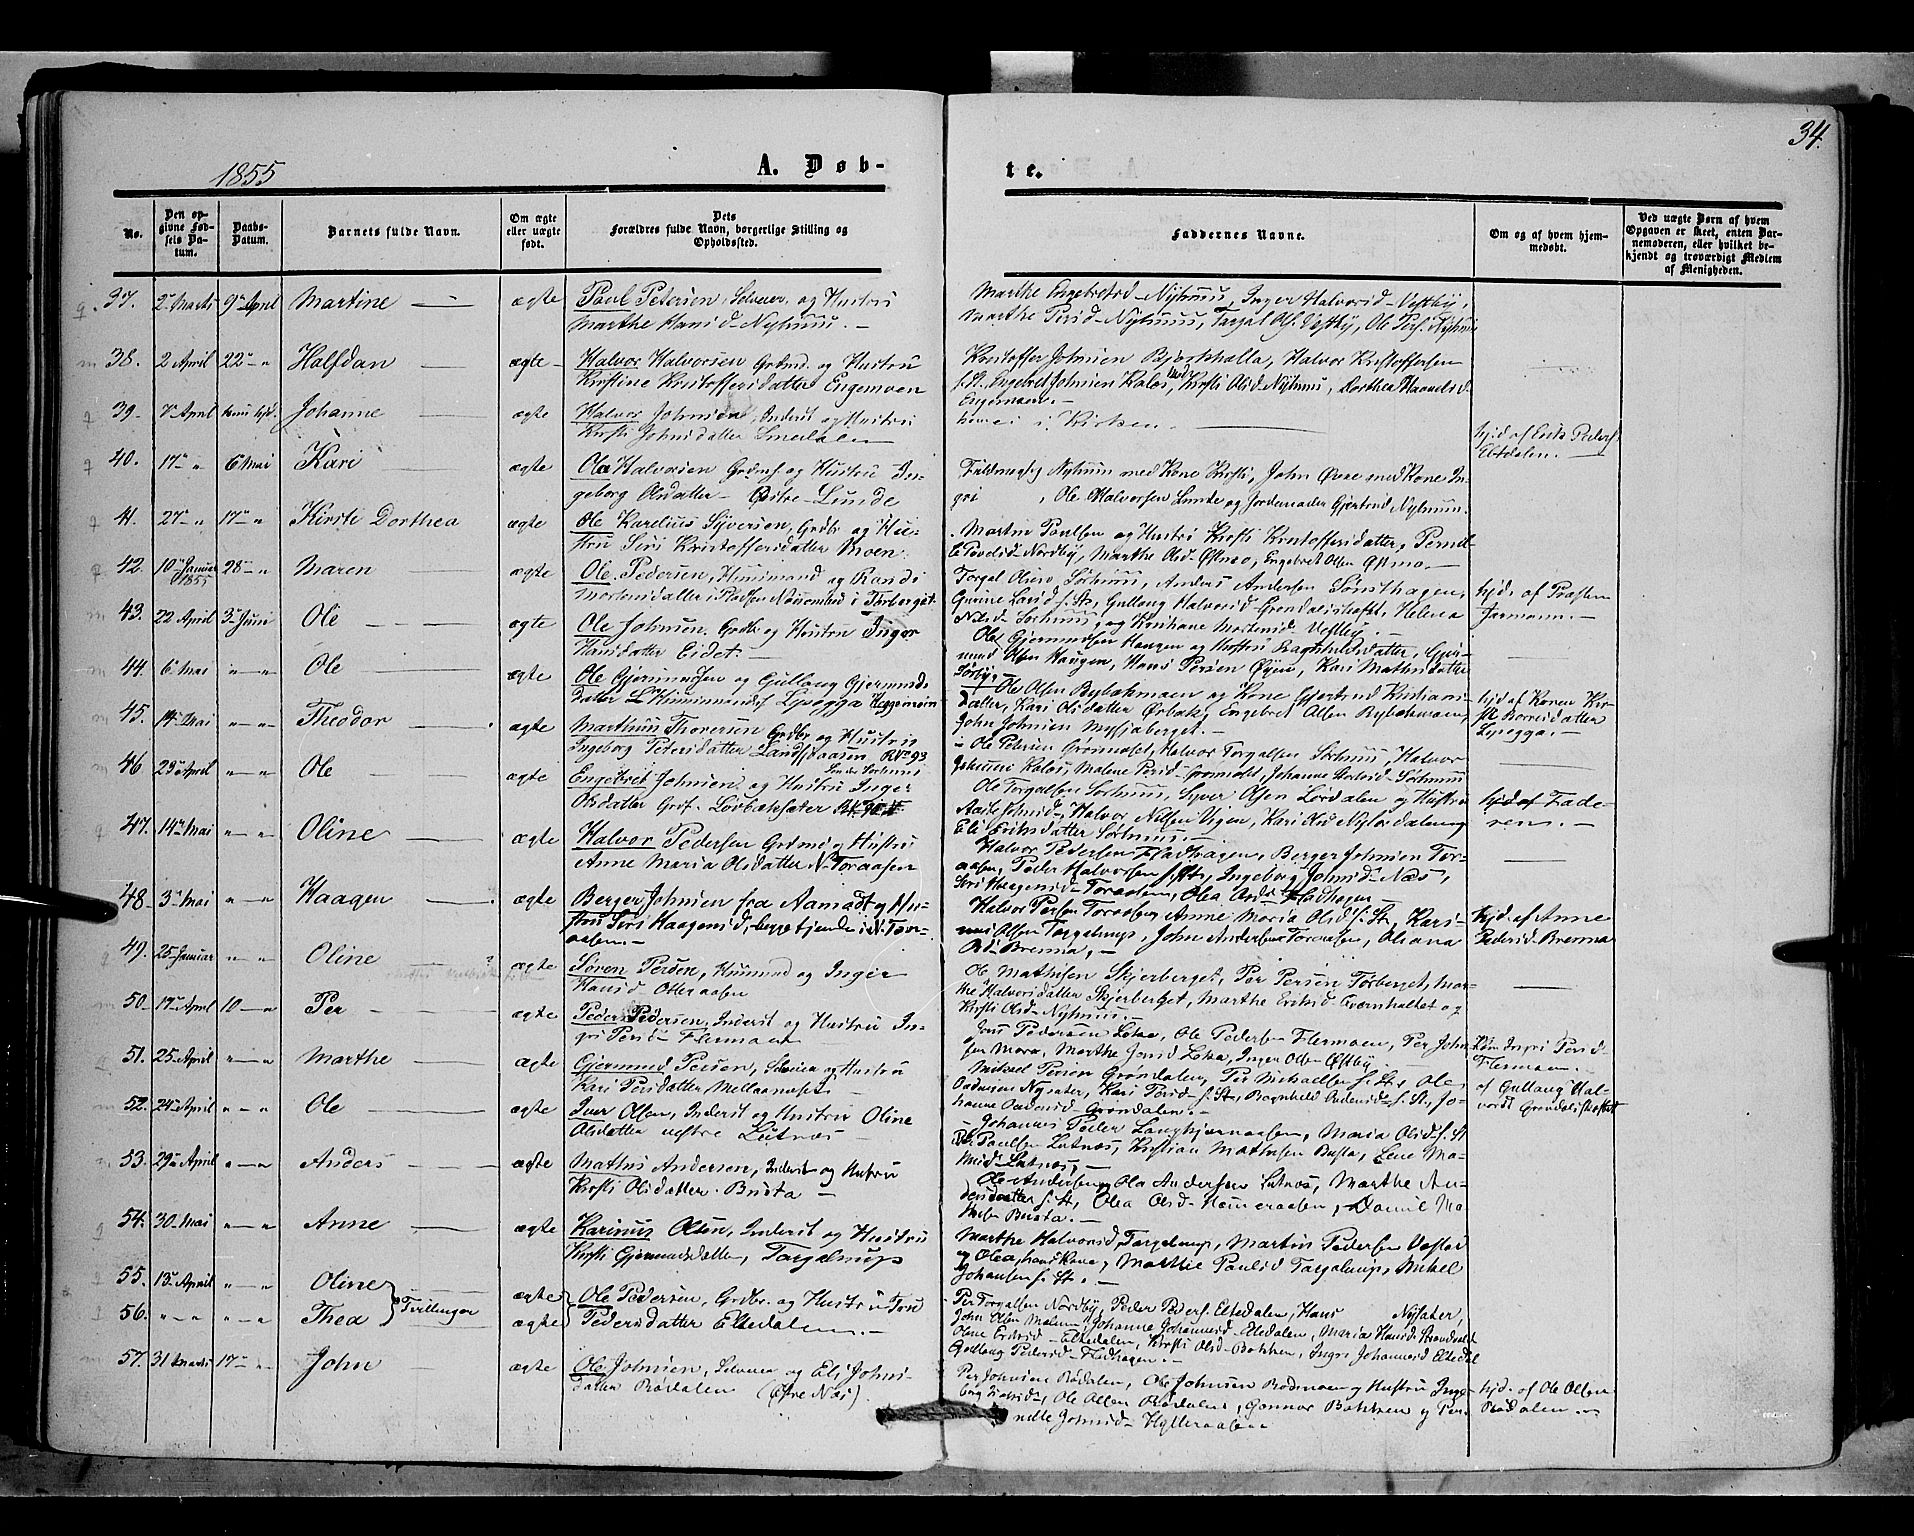 34.
1855
A. Døb-
te.
No.
Den op-
givne Fød-
sels Da-
tum.
Daabs-
Datum.
Barnets fulde Navn.
Om ægte
eller uægte
født.
Dets
Forældres fulde Navn, borgerlige Stilling og
Opholdssted.
Faddernes Navne.
Om og af hvem hjem-
medøbt.
Ved uægte Børn af hvem
Opgaven er skeet, enten Bar-
nemoderen, eller hvilket be-
kjendt og troværdigt Medlem
af Menigheden.
37. 2 Marts 9 April Martine ægte Paul Petersen, Selveier og Hustru
Marthe Hansd. Nyhuus.
Marthe Engebretsd. Nyhuus, Inger Halvorsd. Vestby,
Marthe Persd. Nyhuus, Torgal Ols. Vestby, Ole Pers. Nyhuus
38. 2 April 22 Halfdan ægte Halvor Halvorsen Grdmd. og Hustru
Kirstine Kristoffersdatter Engemoen
Kristoffer Johnsen Bjørkhalla, Halvor Kristoffersen
s. St. Engebret Johnsen Kalas, Kirsti Olsd. Nyhuus, Dorthea Haagensd.
Engemoen.
39. 7 April Johanne ægte Halvor Johnsen, Inderst og Hustru
Kirsti Johnsdatter Smedalen
i Kirken.
hjd. af Erik Peders.
Eltdalen.
40. 17 " 6 Mai Kari ægte Ole Halvorsen Grdmd. og Hustru In-
geborg Olsdatter Østre Lunde
Nyhuus med Kone Kirsti, John Øvre med Kone In-
gri , Ole Halvorsen Lunde og Jordemoder Gjertrud Nyhuus.
41. 27 " 17 " Kirsti Dorthea ægte Ole Karelius Syversen, Grdbr og Hu-
stru Siri Kristoffersdatter Moen.
Martin Paulsen og Hustru Kirsti Kristoffersdatter, Pernil-
le Povelsd. Nordby, Marthe Olsd. Østmo, Engebret Olsen Østmo.
42. 10 Januar 1855 28 " Maren ægte Ole Pedersen, Huusmand og Randi
Mortensdatter i Pladsen i Torberget
Torgal Olsen Sørhuus, Anders Andersen Sønsthagen,
Gurine Larsd. s. St., Gullaug Halvorsd. Grøndalskoftet, Helene
Nilsd. Sørhuus, og Kristiane Mortensd. Vestby.
hjd. af Præsten
Jermann.
43. 22 April 3 Juni Ole ægte Ole Johnsen, Grdbr og Hustru Inger
Hansdatter Eidet.
Ole Gjermundsen Haugen og Hustru Ragnhildsdatter, Gjer-
mund Olsen Haugen, Hans Persen Øyen, Kari Mathisdatter
Sørby.
44. 6 Mai " " Ole ægte Ole Gjermundsen og Gullaug Gjermunds-
datter Huusmandsf. Ljøegga Heggemoen
Ole Olsen Bybækmoen og Kone Gjertrud Kristians-
datter, Kari Olsdatter Ørbæk, Engebret Olsen Bybækmoen,
John Johnsen Mysjaberget.
hjd. af Konen Kir-
sti Borresdatter
Lyøegga.
45. 14 Mai " " Theodor ægte Marthinus Thoresen Grdbr og Hustru
Ingeborg Pedersdatter
Ole Petersen Grønnoset, Halvor Torgalsen Sørhuus, Halvor
Kalas, Malene Persd. Grønvold, Johanne Sørhuus
46. 23 April " " Ole ægte Engebret Johnsen og Hustru Inger
Olsdatter Grdf. Løvbæksæter
Ole Torgalsen Sørhuus, Syver Olsen Lørdalen og Hustru
Halvor Nilsen Vigen, Kari Nylørdalen og
Eli Eriksdatter Sørhuus.
hjd. af Fade-
ren.
47. 14 Mai " " Oline ægte Halvor Pedersen Grdmd og Hustru
Anne Maria Olsdatter N. Toraasen
Halvor Pedersen Fladhagen, Berger Johnsen Tor-
aasen, Peder Halvorsen s. St., Ingeborg Johnsd. Næs,
Siri Haagensd. Toraasen, Olea Olsd. Fladhagen
48. 3 Mai " " Haagen ægte Berger Johnsen fra Aamodt og Hu-
stru Siri Haagensd., begge tjende i N. Tor-
aasen.
Halvor Persen Toraasen, Anne Maria Olsd. s. St., Kari-
nus Olsen Torgalrup, John Andersen Toraasen, Oliana
Olsd. Brenna,
hjd. af Anne
Pedersd. Brenna
49. 25 Januar " " Oline ægte Søren Persen, Huusmd og Inger
Hansd. Otteraasen
Ole Mathisen Skjerberget, Per Persen Torberget, Mar-
the Halvorsdatter Skjerberget, Marthe Eriksd. Kvernhaltet og
Kirsti Olsd. Nyhuus.
50. 17 April 10 " Per ægte Peder Pedersen, Inderst og Hustru In-
gri Persd. Flermoen
Jens Pedersen Løka, Ole Pedersen Flermoen, Per John-
sen Mora, Marthe Jonsd. Løka, Inger Olsen Østby
Ingri Persd.
Flermoen.
51. 25 April " " Marthe ægte Gjermund Persen, Selveier og Hustru
Kari Persdatter Mellaaneset
Mikkel Persen Grøndalen, Per Mickelsen s. St., Ole
Nysæter, Kari Persd. s. St., Ragnhild s. St., Jo-
hanne Grøndalen.
af Gullaug Hal-
vorsdt Grøndalskoftet
52. 24 April " " Ole ægte Iver Olsen, Inderst og Hustru Oline
Olsdatter vestre Lutnæs
Johannes Peder Langkjernaasen, Maria Olsd. s. St.
Paulsen Lutnæs, Kristian Mathisen Busta, Lene Ma-
thisd. Lutnæs,
53. 29 April " " Anders ægte Mathis Andersen, Inderst og Hustru
Kirsti Olsdatter Busta
Ole Andersen, Ola Andersen Lutnæs, Marthe An-
dersdatter s. St., Olea Olsd. Daniel Ma-
thisen Busta.
54. 30 Mai " " Anne ægte Karinus Olsen, Inderst og Hustru
Kirsti Gjermundsdatter, Torgalrup
Marthe Halvorsd. Torgalrup, Martin Pedersen
og Olea, hans Kone, Marthe Paulsd. Torgalrup, Mikel
Johansen s. St.
55. 13 April " " Oline } Tvillinger ægte Ole Pedersen, Grdbr. og Hustru Toru
56. " " " " Thea ægte Pedersdatter Eltedalen.
Per Torgalsen Nordby, Peder Peders. Eltedalen, Hans Nysæter,
John Olsen Malum, Johanne Johannesd. Eltedalen, Maria Hansd.
Olene Eriksd. Eltedalen, Kirsti Olsd. Bakken, Ingri Johannesd. Eltedal
Gullaug Pedersd. Fladhagen.
57. 31 Marts 17 " John ægte Ole Johnsen, Selveier og Eli Johns-
datter Rødalen (Øvre Næs).
Per Johnsen Rødalen, Ole Johnsen Rødmoen og Hustru Inge-
borg Ole Olsen Rødalen, Gunnar Bakken og Per-
nille Johnsd. Hylleraasen
hjd. af Ole Olsen
Rødalen.